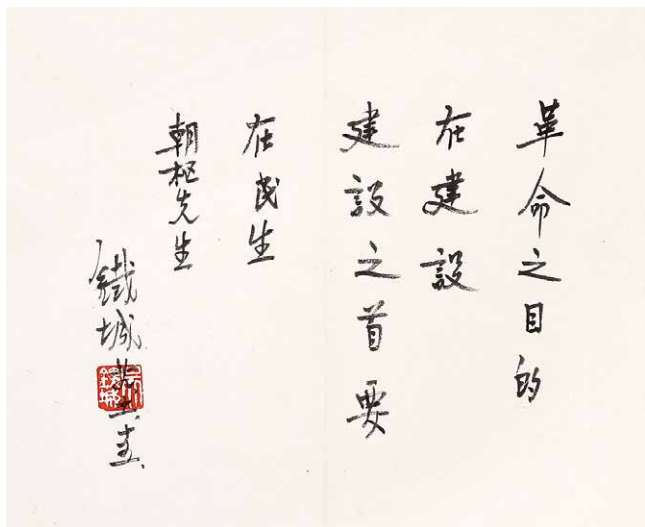 革命之目的
在建設
建設之首要
在民生
朝枢先生
鐵城
吳鐵城